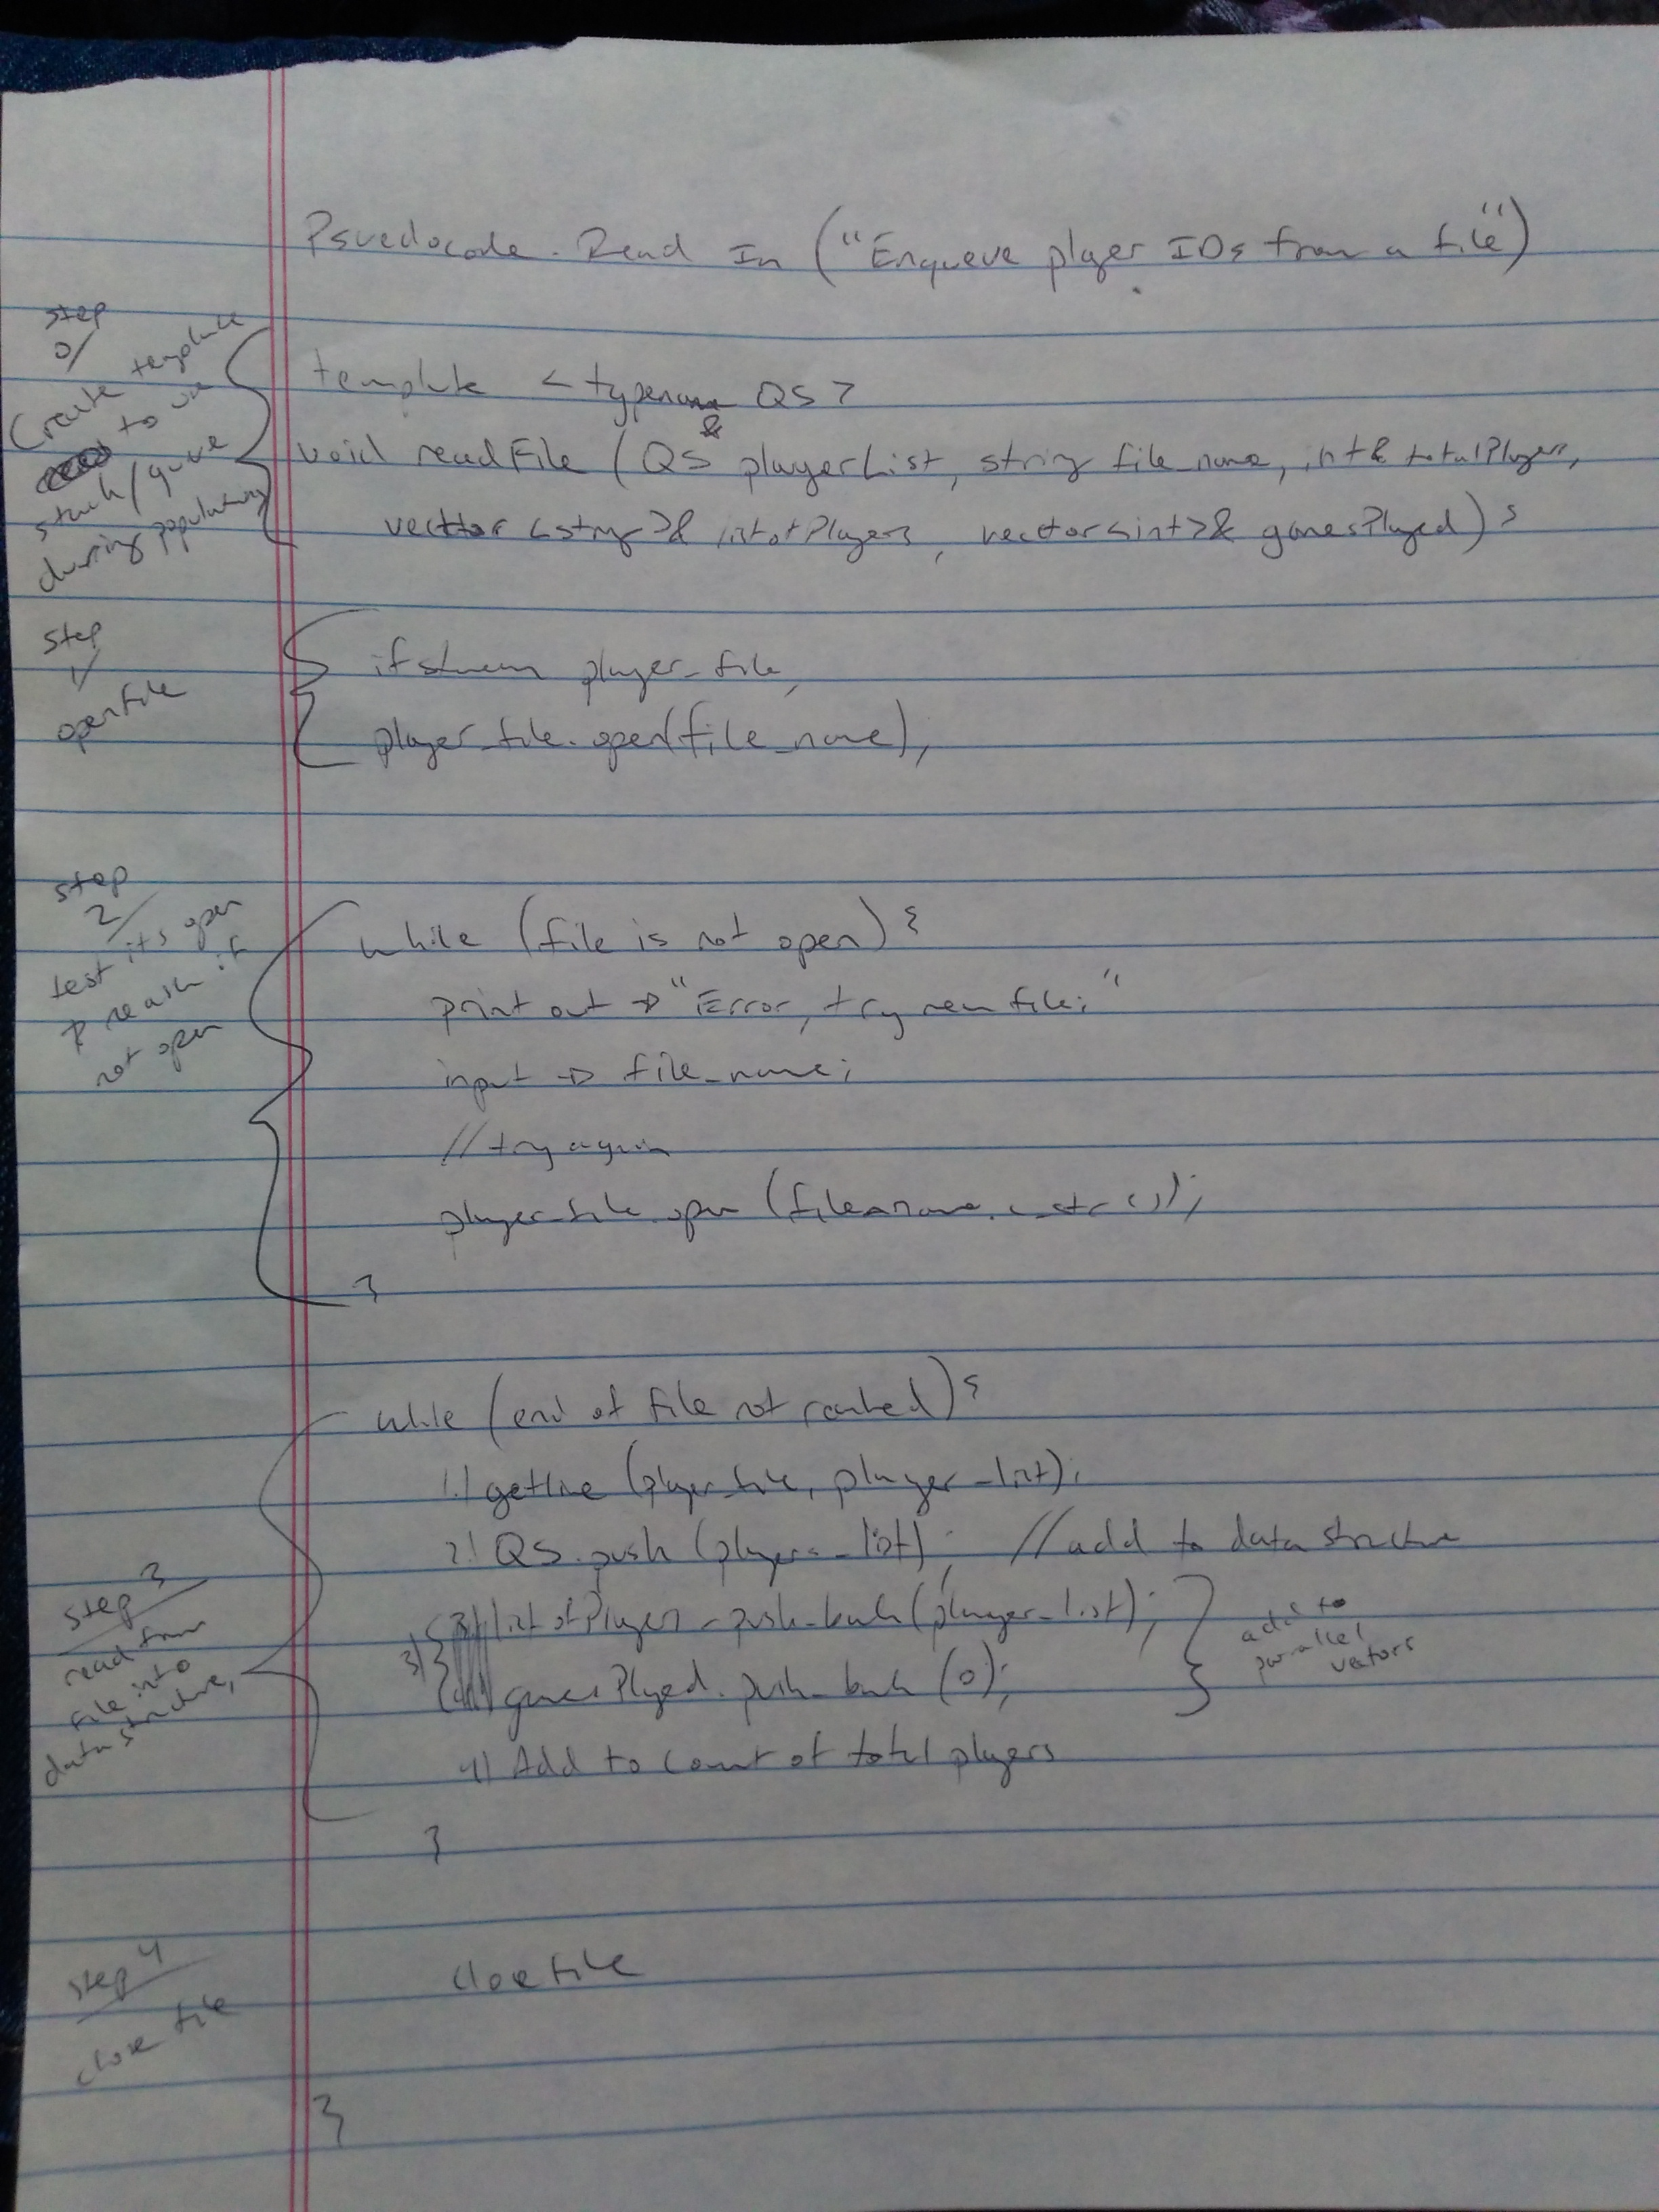 Psuedocode. Read In ("Enqueue player IDs from a file")
step
0/
Create template
to use
stack/queue
during populating
template <typename QS>
&
void readFile (QS playerList, string file_name, int& totalPlayers,
vecttor <string>& listofPlayers, vector<int>& gamesPlayed) {
step
1/
open file
ifstream player_file,
player_file.open(file_name),
step
2/
test its open
& reask if
not open
while (file is not open) {
print out → "Error, try new file;"
input → file_name;
//try again
player_file.open (file_name.c_str());
}
while (end of file not reached) {
1.) getline (player_file, player_list);
2.) QS.push (players_list); //add to data structure
step 3
read from
file into
data structure,
3) listofPlayers.push_back(player_list);
gamesPlayed.push_back (0);
add to
parallel
vectors
4) Add to count of total players
}
step 4
close file
close file
}